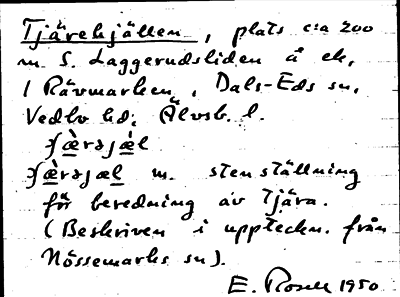 Tjärehjällen, plats c:a 200
m. S. Laggerudsliden å ek.
/ Rävmarken, Dals-Eds sn,
Vedbo hd, Älvsb. l.
m. stenställning
för beredning av tjära.
(Beskriven i uppteckn. från
Nössemarks sn).
E. Rosell 1950